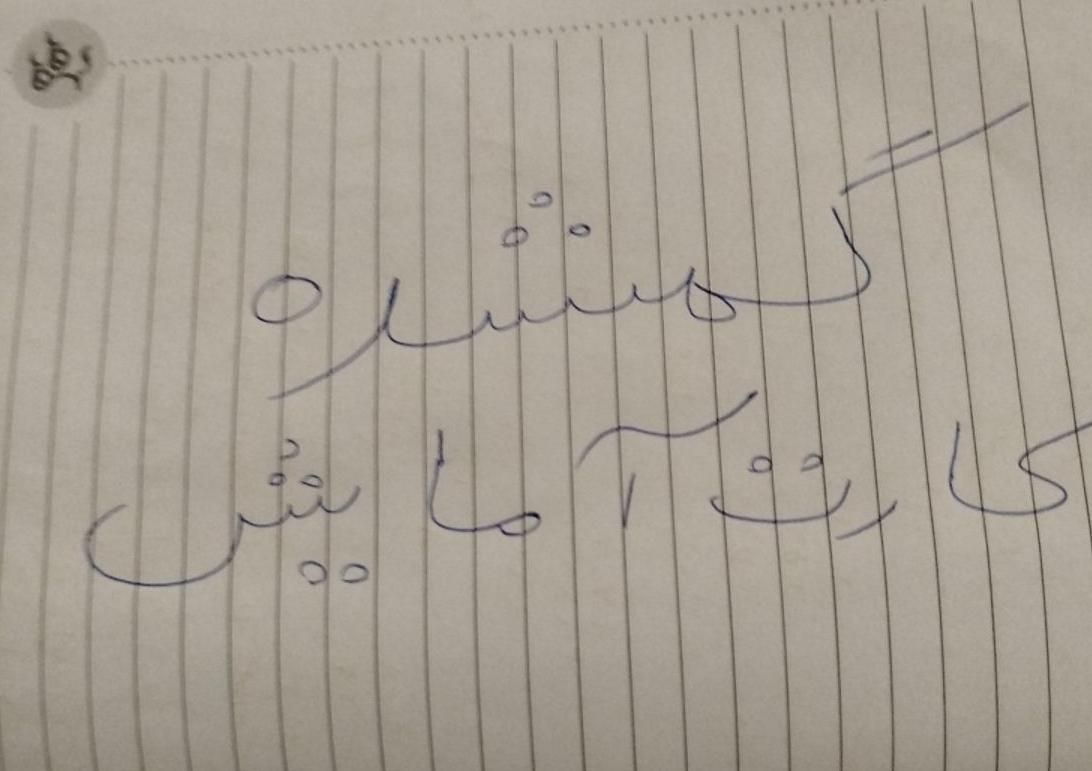 گمشده
کارت آمایش